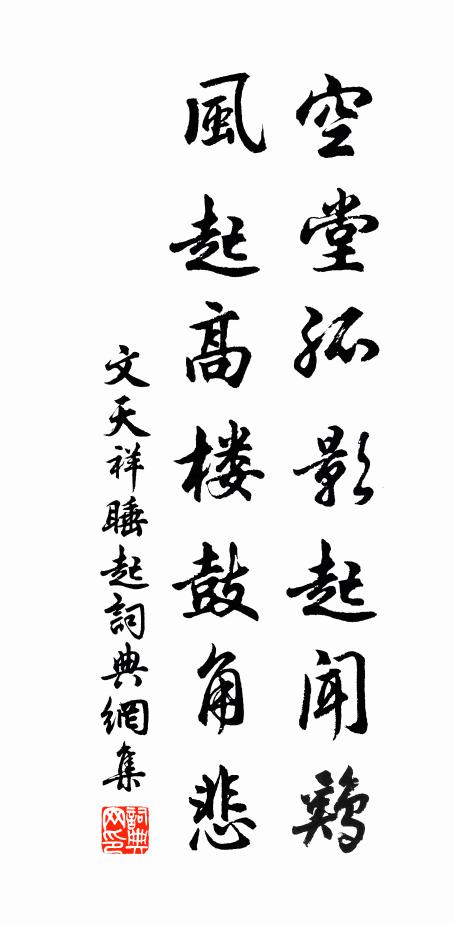 空堂孤影起闻鷄
風起高楼鼓角悲
文天祥睡起詞典網集
詞典網印